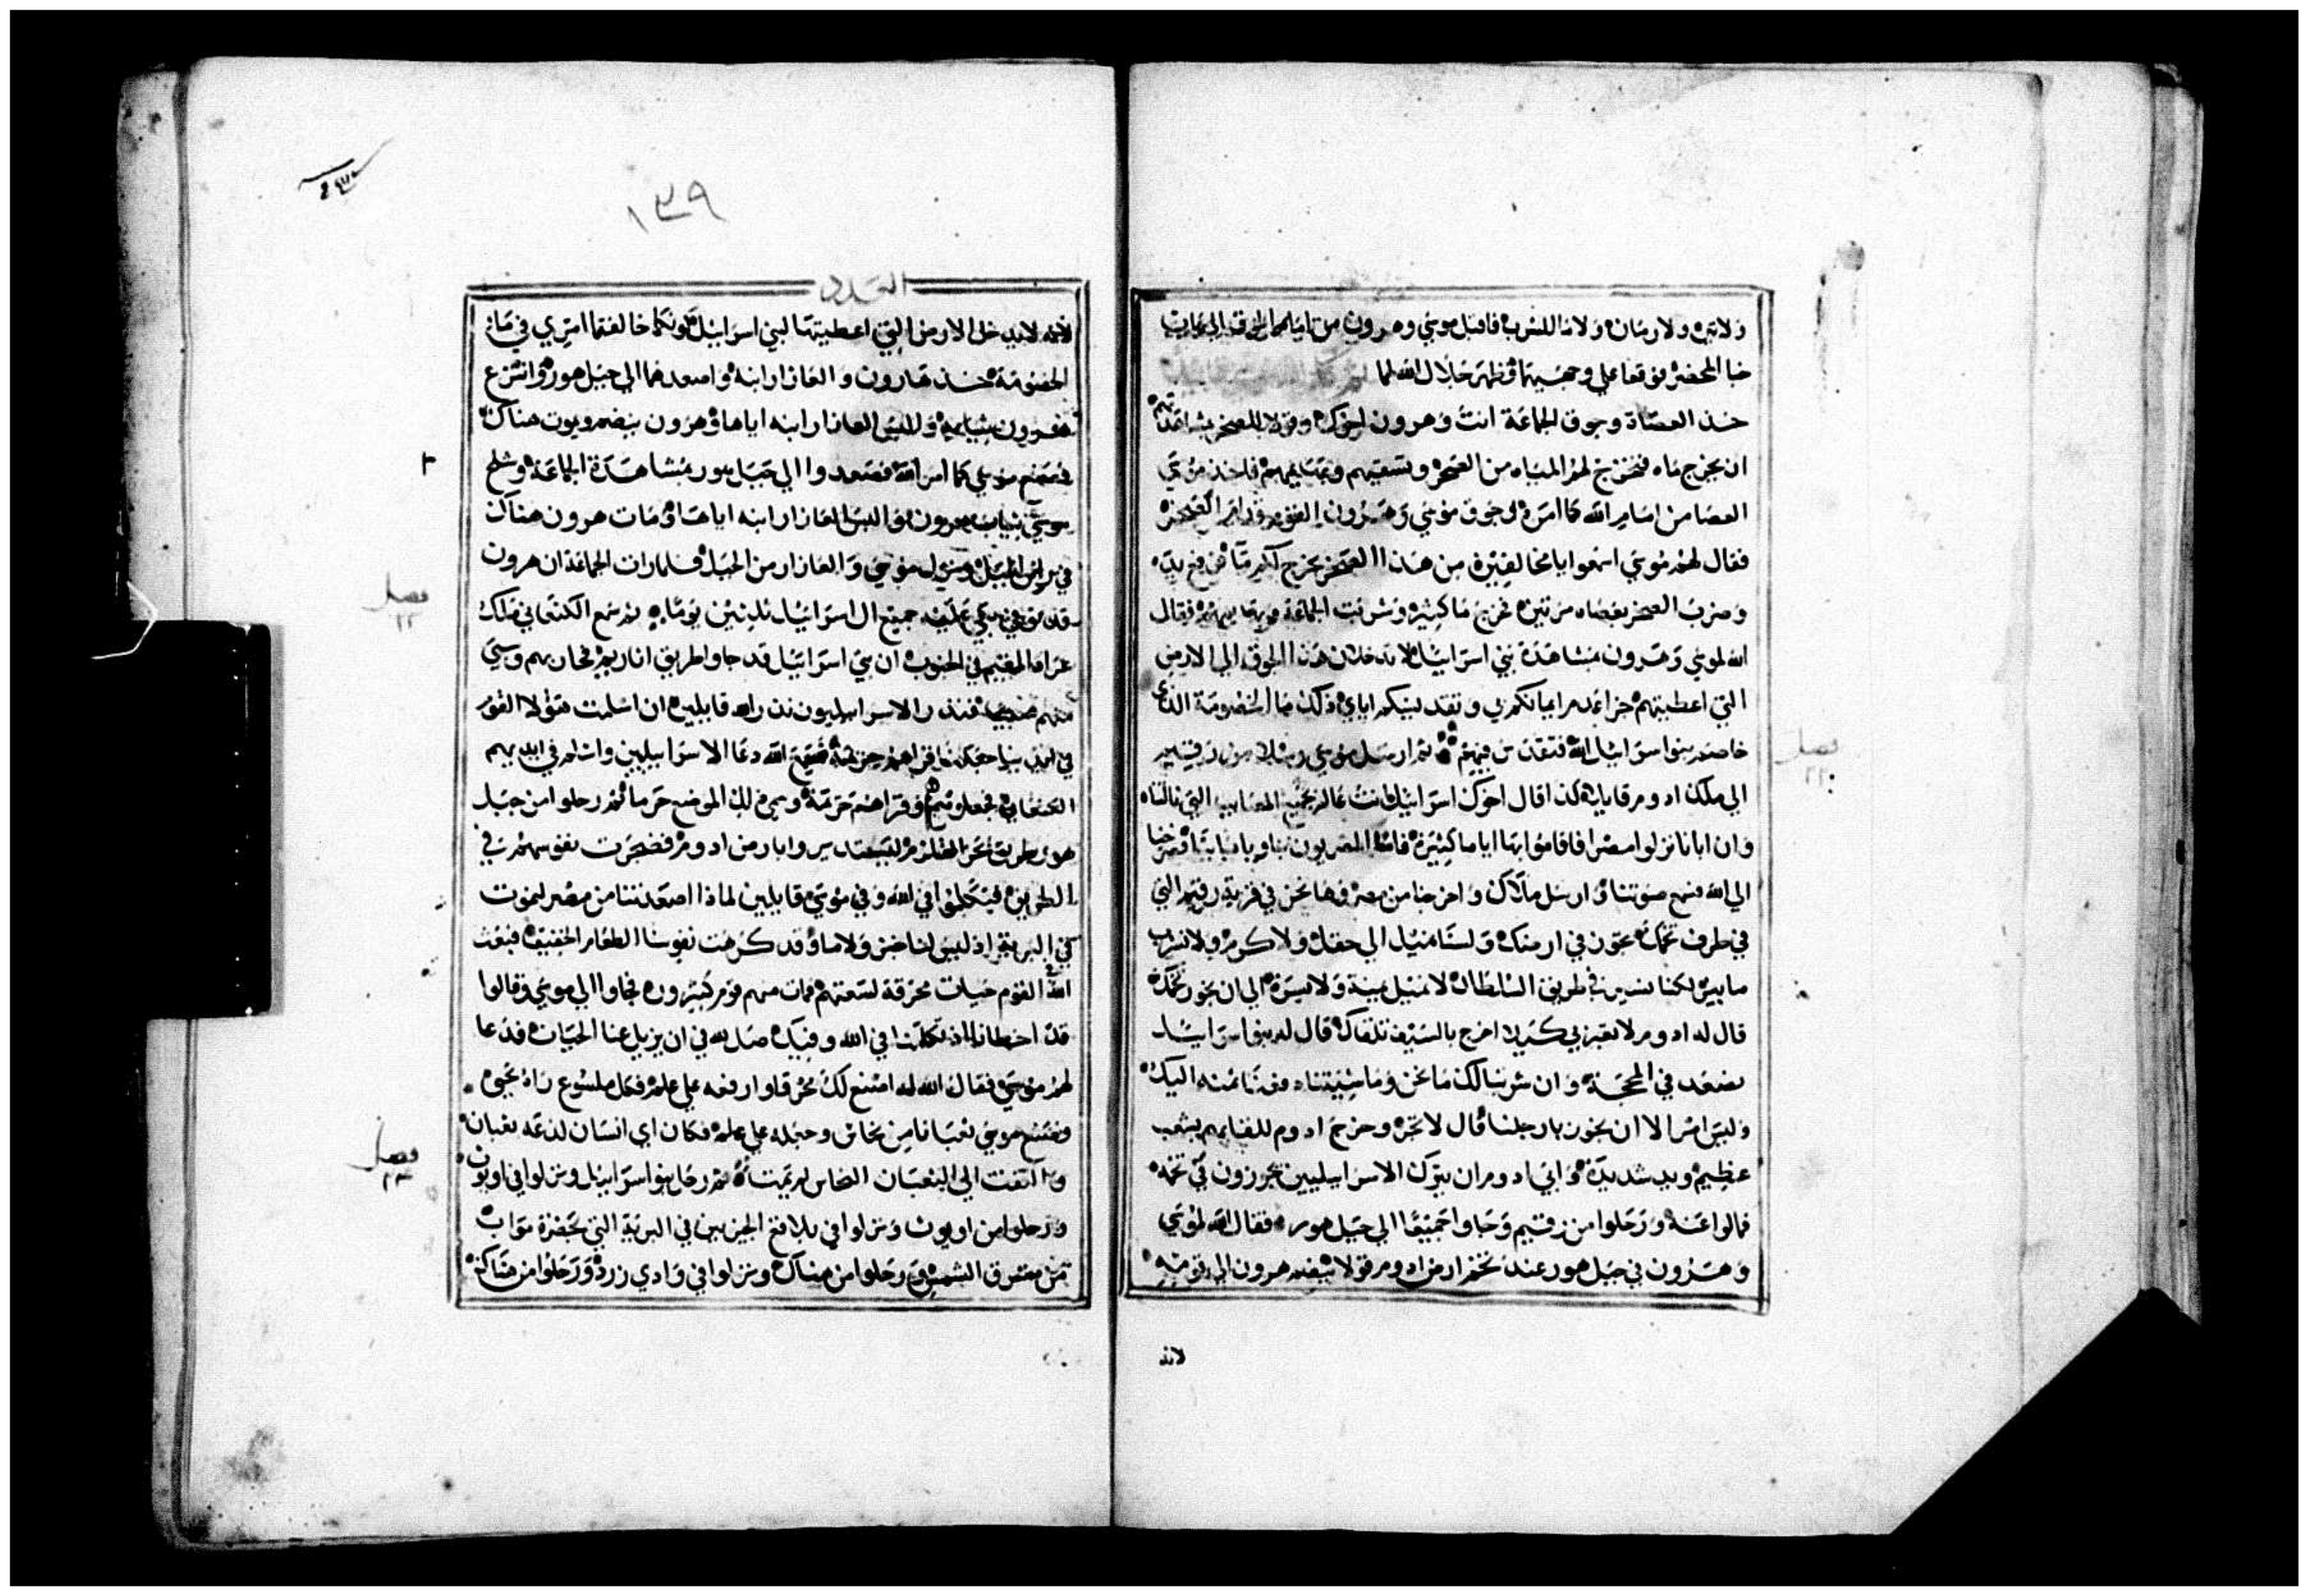 ولا تين ولا رمان ولا ما للشرب فاقبل موسي وهرون من امام الجوق الي باب
خبا المحضر فوقعا علي وجهيهما وظهر جلال الله لهما
خذ العصاة وجوق الجماعة انت وهرون اخوك وقولا للصخر بمشاهدتهم
ان يخرج ماه فتخرج لهم المياه من الصخر وتسقيهم وبهايمهم فاخذ موسي
العصا من امام الله كما امره ثم جوق موسي وهرون القوم قدام الصخر
فقال لهم موسي اسمعوا يا مخالفين من هذا الصخر نخرج لكم ما ثم رفع يده
وضرب الصخر بعصاه مرتين فخرج ما كثير وشربت الجماعة وبهايمهم فقال
الله لموسي وهرون بمشاهدة بني اسراييل لا تدخلان هذا الجوق الي الارض
التي اعطيتهم جزا عدم ايمانكم بي وتقديسكم اياي وذلك ما الخصومة الذي
خاصم بنوا اسراييل الله فتقدس فيهم ثم ارسل موسي رسلا من رقيم
الي ملك ادوم قايلا كذا قال اخوك اسراييل انت عالم بجميع المصايب التي نالتنا
وان ابانا نزلوا مصر فاقاموا بها اياما كثيرة فاسا المصريون بنا وبابايتنا فصرخنا
الي الله فسمع صوتنا وارسل ملاك واخرجنا من مصر وها نحن في قرية رقيم التي
في طرف تخمك نجوز في ارضك ولسنا نميل الي حقل ولا كرم ولا نشرب
ما بير لكنا نسير في طريق السلطان لا نميل يمنة ولا يسرة الي ان نجوز تخمك
قال له ادوم لا تعبر بي كيلا اخرج بالسيف تلقاك قال له بنو اسراييل
نصعد في المحجة وان شربنا لك ما نحن وماشيتنا دفعنا ثمنه اليك
وليس امر الا ان نجوز بارجلنا قال لا تجز وخرج ادوم للقايهم بشعب
عظيم ويد شديدة وابي ادوم ان يترك الاسراييليين يجوزون في تخمه
فمالوا عنه ورحلوا من رقيم وجاوا جميعا الي جبل هور فقال الله لموسي
وهرون في جبل هور عند تخم ارض ادوم قولا ينضم هرون الي قومه
لانه
٢٩٣
١٣٩
العدد
لانه لا يدخل الارض التي اعطيتها لبني اسراييل لانكما خالفتما امري في ما
الخصومة خذ هارون والعازار ابنه واصعدهما الي جبل هور وانتزع
هرون ثيابه والبس العازار ابنه اياها وهرون ينضم ويموت هناك
فصنع موسي كما امر الله فصعدوا الي جبل هور بمشاهدة الجماعة وشلح
موسي ثياب هرون والبس العازار ابنه اياها ومات هرون هناك
في راس الجبل ونزل موسي والعازار من الجبل فلما رات الجماعة ان هرون
قد توفي بكي عليه جميع ال اسراييل ثلثين يوما ثم سمع الكنعاني ملك
عراد المقيم في الجنوب ان بني اسراييل قد جاوا طريق اتاريم فحاربهم وسبي
منهم سبيا فنذر الاسراييليون نذرا لله قايلين ان اسلمت هولا القوم
في ايدينا جعلنا قراهم حرمة فسمع الله دعا الاسراييليين واسلم في ايديهم
الكنعاني فجعلوهم وقراهم حرمة وسمي ذلك الموضع حرما ثم رحلوا من جبل
هور طريق بحر القلزم ليستديروا بارض ادوم فضجرت نفوسهم في
الطريق فتكلموا في الله وفي موسي قايلين لماذا اصعدتنا من مصر لنموت
في البرية اذ ليس لنا خبز ولا ما وقد كرهت نفوسنا الطعام الخفيف فبعث
الله القوم حيات محرقة لسعتهم فمات منهم قوم كثيرون فجاوا الي موسي وقالوا
قد اخطانا اذ تكلمنا في الله وفيك صل لله في ان يزيل عنا الحيات فدعا
لهم موسي فقال الله له اصنع لك محرقا وارفعه علي علم فكل ملسوع راه يحيي
فصنع موسي ثعبانا من نحاس وجعله علي علم فكان اي انسان لدغه ثعبان
والتفت الي الثعبان النحاس لم يمت ثم رحل بنوا اسراييل ونزلوا في اوبوت
ورحلوا من اوبوت ونزلوا في بلاقع المجيزين في البرية التي بحضرة مواب
من مشرق الشمس ورحلوا من هناك ونزلوا في وادي زرد ورحلوا من هناك
٣
فصل
٢١
فصل
٢٢
فصل
٢٣